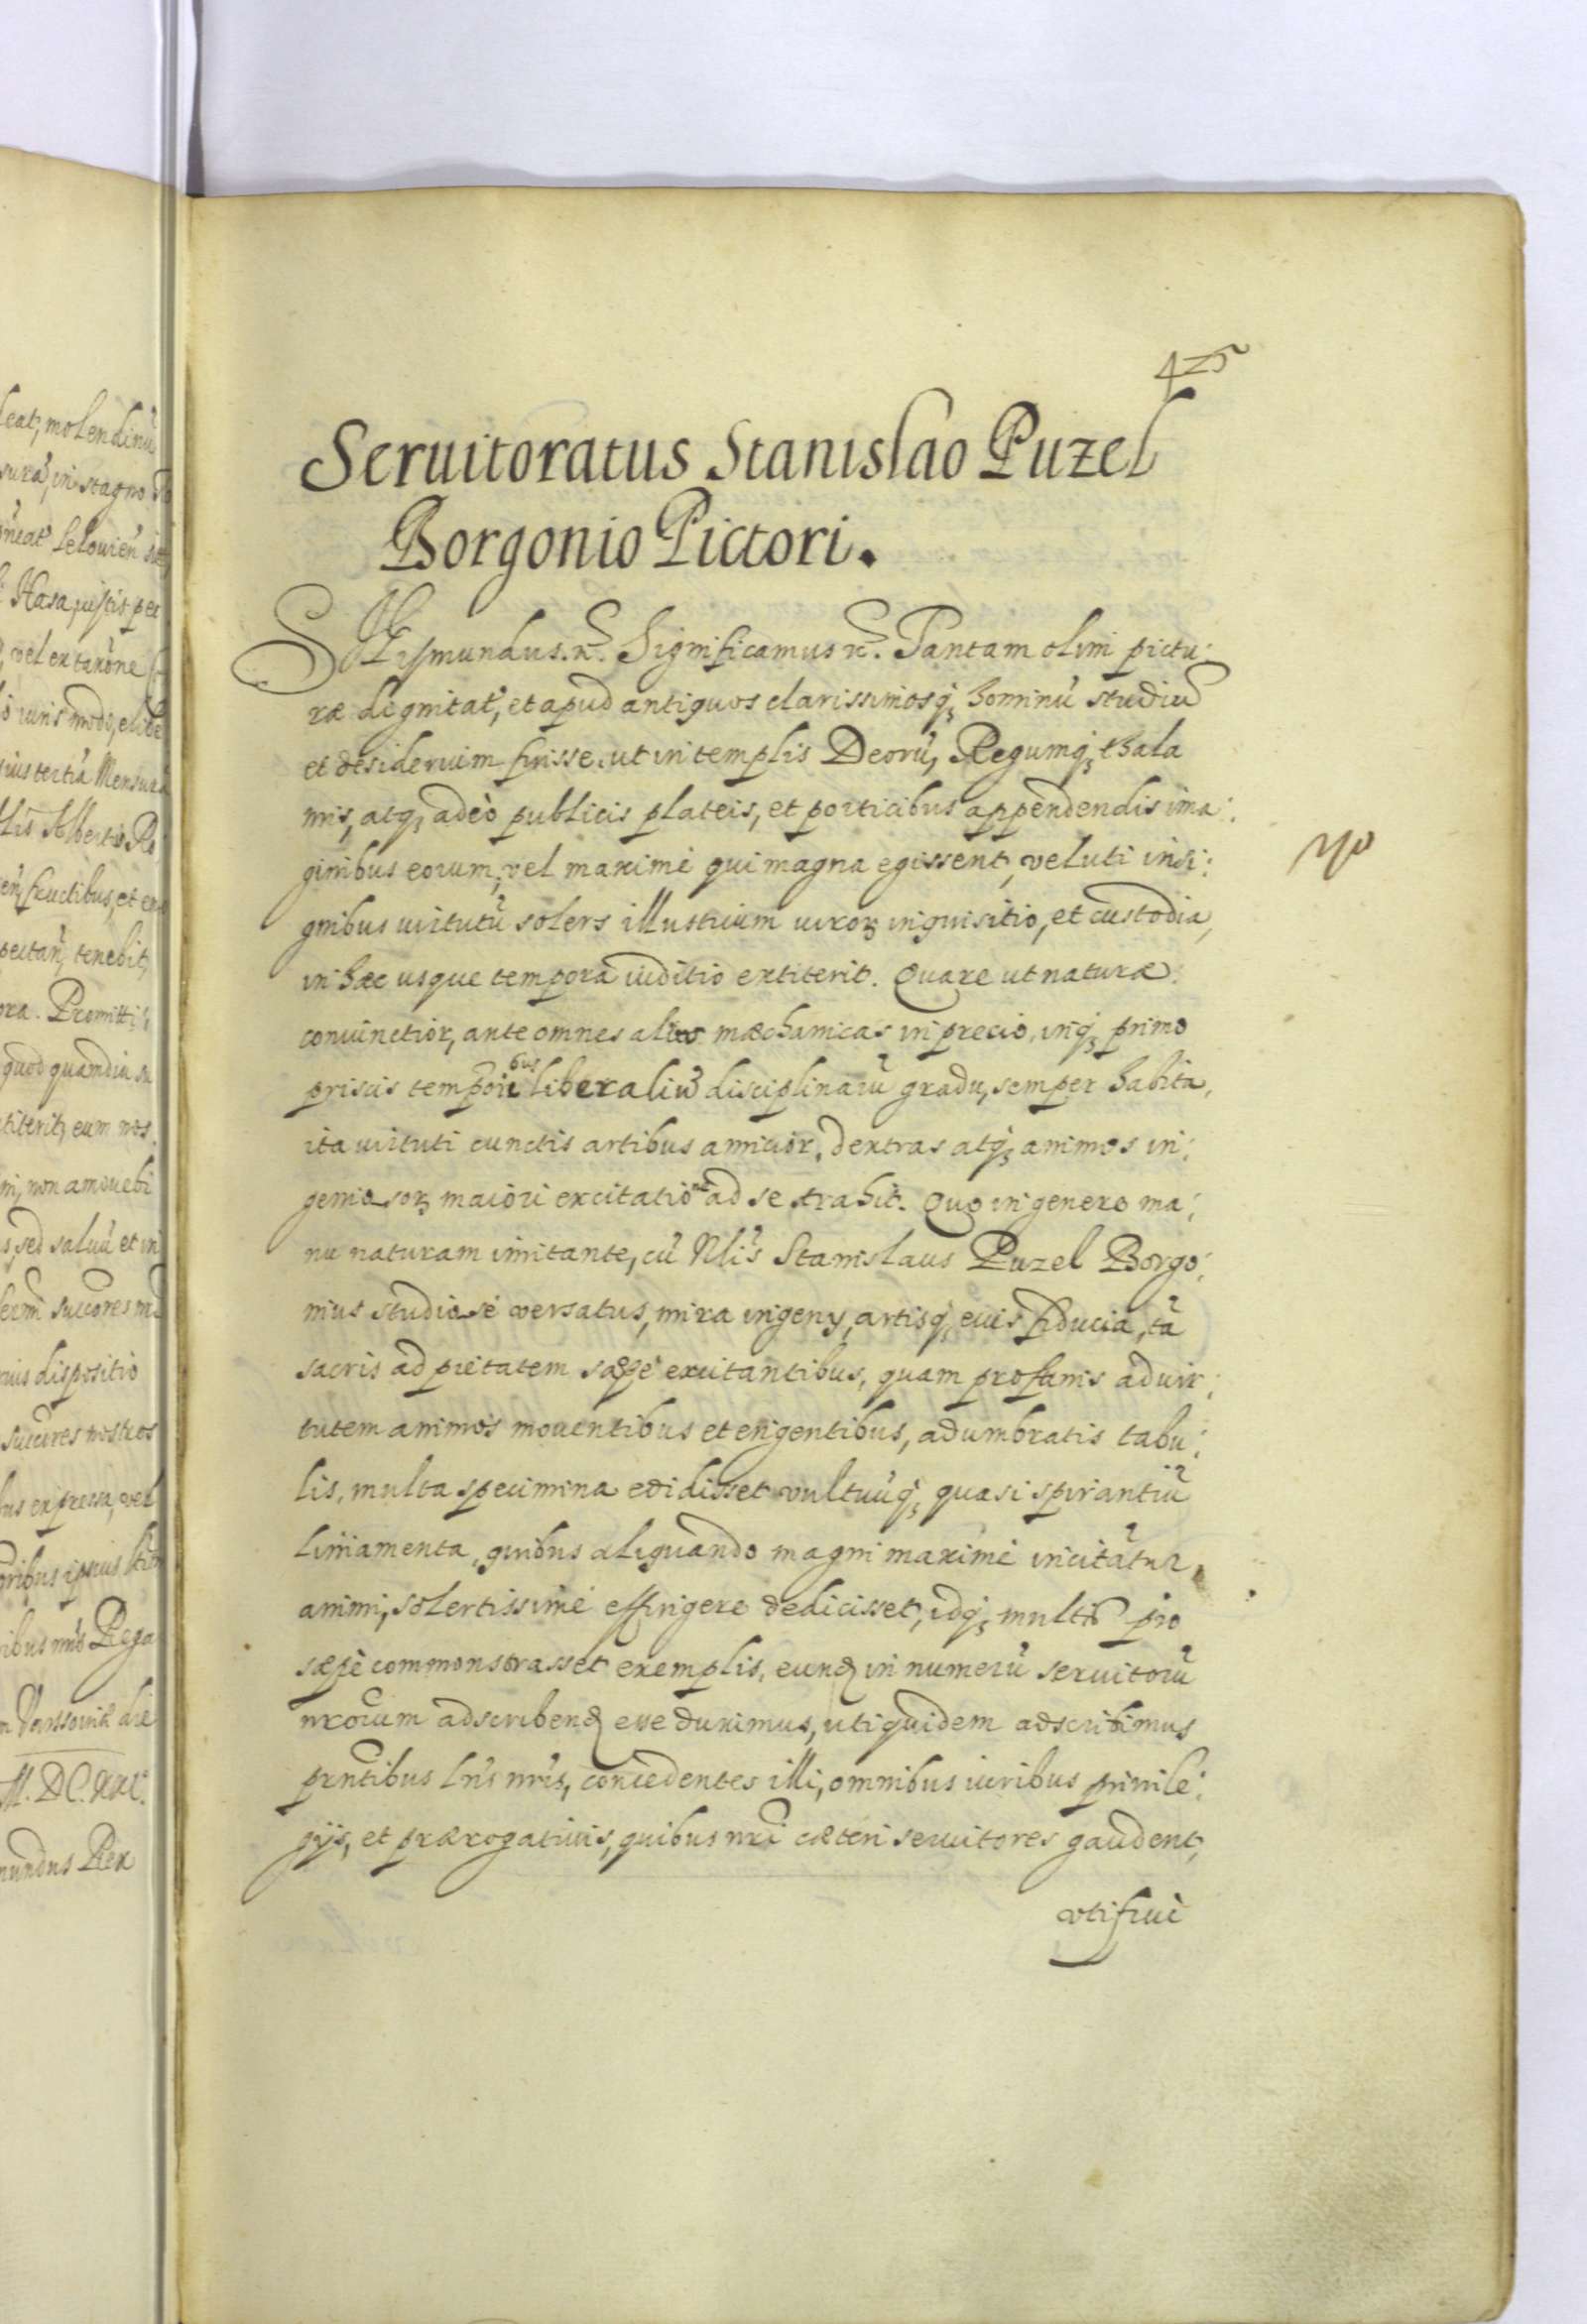 leat, molendinū
surā, in stagno
Hasa, iustis per
vel extaxōne
iuris modo,
tertia Mensura
Albertus
fructibus, et
tenebit,
Promitti
quod quamdiu
titerit, eum nos
non amovebi
sed salvū et in
succores
dispositio
succores nostros
expressa, vel
ipsius
Rega
die
M.DC.XXV.
mundus Rex
425
Seruitoratus Stanislao Puzel
Borgonio Pictori.
Sigismundus. &c. Significamus &c. Tantam olim pictu:
ræ dignitat̄, et apud antiquos clarissimosq; hominū studiū
et desiderium fuisse, ut in templis Deorū, Regumq; thala
mis, atq; adeò publicis plateis, et porticibus appendendis ima:
ginibus eorum, vel maximè qui magna egissent, veluti insi:
gnibus uirtutū solers illustrium uiroꝝ inquisitio, et custodia,
in hæc usque tempora iuditio extiterit. Quare ut naturæ
coniunctior, ante omnes alias mæchanicas in precio, inq; primo
priscis temporibus liberaliū disciplinarū gradu, semper habita,
ita uirtuti cunctis artibus amicior, dextras atq; animos in:
geniosoꝝ maiori excitatione ad se trahit. Quo in genere ma:
nu naturam imitante, cū Nlīs Stanislaus Puzel Borgo:
nius studiosè versatus, mira ingenij, artisq; eius fiducia, tā
sacris ad pietatem sæpè excitantibus, quam profanis ad uir:
tutem animos mouentibus et erigentibus, adumbratis tabu:
lis, multa specimina edidisset vultuūq; quasi spirantiū
liniamenta, quibus aliquando magni maximè incitātur,
animi, solertissimè effingere dedicisset, idq; multis pro
sæpè commonstrasset exemplis, eunđ in numerū seruitorū
nrorum adscribenđ esse duximus, uti quidem adscribimus
prntibus Lrīs nrīs, concedentes illi, omnibus iuribus priuile:
gijs, et prærogatiuis, quibus nrī cæteri seruitores gaudent,
uti siue